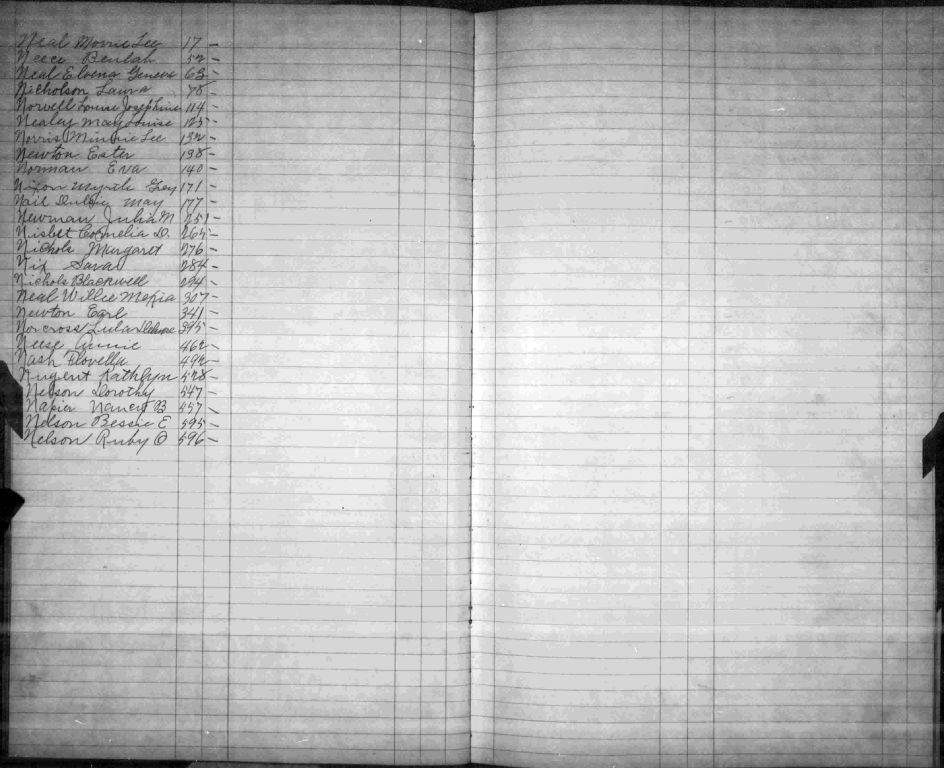 Neal Morrie Lee 17 -
Neece Beulah 52 -
Neal Elvena Geneva 63 -
Nicholson Laura 78 -
Norvell Louise Josephine 114 -
Nealey May Louise 125 -
Norris Minnie Lee 132 -
Newton Ester 138 -
Norman Eva 140 -
Nixon Myrtle Grey 171 -
Nail May 177 -
Newman Julia M 251 -
Nisbet Cornelia D. 265 -
Nichols Margaret 276 -
Nix Sarah 284 -
Nichols Blackwell 294 -
Neal Willie Mekia 307 -
Newton Earl 341 -
Norcross Lula 395 -
Neese Annie 462 -
Nash Flovella 492 -
Nugent Kathlyn 528 -
Nelson Dorothy 547 -
Napier Nancy B 557 -
Nelson Bessie E 595 -
Nelson Ruby O 596 -